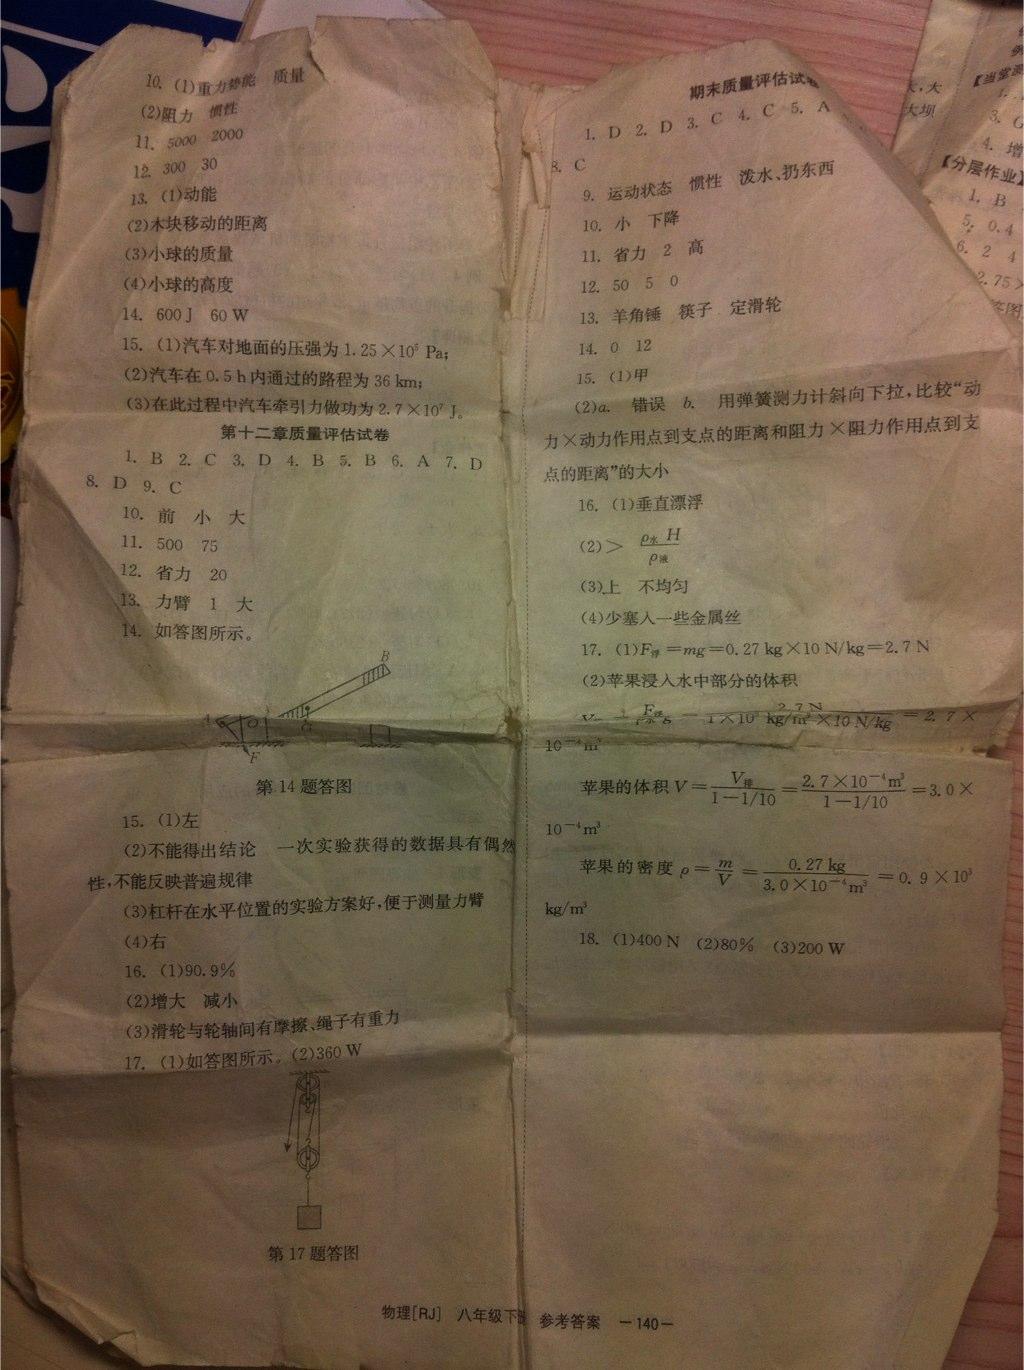 10. (1)重力势能 质量
(2)阻力 惯性
11. 5000 2000
12. 300 30
13. (1)动能
(2)木块移动的距离
(3)小球的质量
(4)小球的高度
14. 600 J 60 W
15. (1)汽车对地面的压强为 1.25×10⁵ Pa;
(2)汽车在 0.5 h 内通过的路程为 36 km;
(3)在此过程中汽车牵引力做功为 2.7×10⁷ J。
第十二章质量评估试卷
1. B 2. C 3. D 4. B 5. B 6. A 7. D
8. D 9. C
10. 前 小 大
11. 500 75
12. 省力 20
13. 力臂 1 大
14. 如答图所示。
B
A O
F
第 14 题答图
15. (1)左
(2)不能得出结论 一次实验获得的数据具有偶然
性,不能反映普遍规律
(3)杠杆在水平位置的实验方案好,便于测量力臂
(4)右
16. (1)90.9%
(2)增大 减小
(3)滑轮与轮轴间有摩擦、绳子有重力
17. (1)如答图所示。(2)360 W
第 17 题答图
期末质量评估试卷
1. D 2. D 3. C 4. C 5. A
8. C
9. 运动状态 惯性 泼水、扔东西
10. 小 下降
11. 省力 2 高
12. 50 5 0
13. 羊角锤 筷子 定滑轮
14. 0 12
15. (1)甲
(2)a. 错误 b. 用弹簧测力计斜向下拉,比较“动
力×动力作用点到支点的距离和阻力×阻力作用点到支
点的距离”的大小
16. (1)垂直漂浮
(2)> ρ水 H / ρ液
(3)上 不均匀
(4)少塞入一些金属丝
17. (1)F浮=mg=0.27 kg×10 N/kg=2.7 N
(2)苹果浸入水中部分的体积
= 2.7 N / 1×10³ kg/m³×10 N/kg = 2.7×
10⁻⁴ m³
苹果的体积 V = V排 / 1−1/10 = 2.7×10⁻⁴ m³ / 1−1/10 = 3.0×
10⁻⁴ m³
苹果的密度 ρ = m / V = 0.27 kg / 3.0×10⁻⁴ m³ = 0.9×10³
kg/m³
18. (1)400 N (2)80% (3)200 W
大,大
大坝
【当堂
3. G
4. 增
【分层作业】
1. B
5. 0.4
6. 2 4
2.75×
答图
物理[RJ] 八年级下册 参考答案 —140—